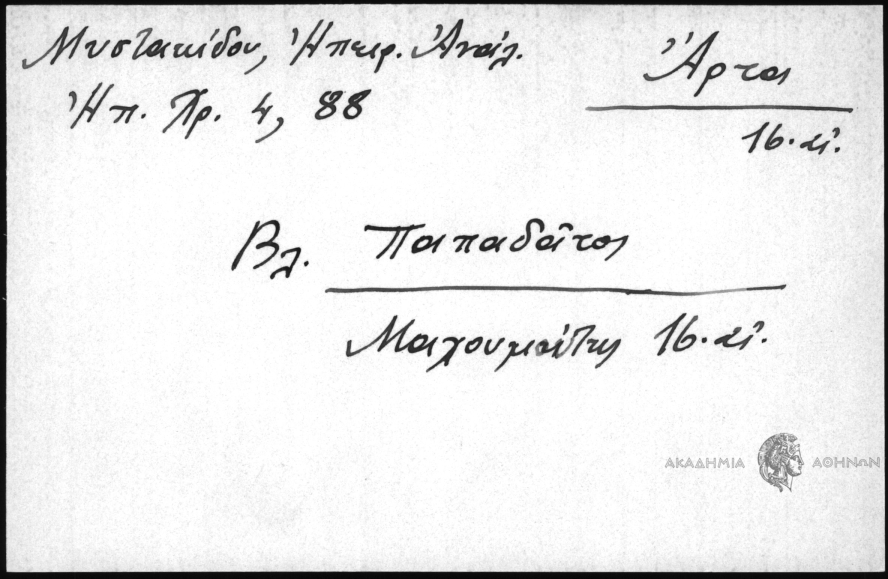 Μυστακίδου, Ἠπειρ. Ἀνάλ.
Ἠπ. Χρ. 4, 88
Ἄρτα
16. αἰ.
Βλ. Παπαδᾶτος
16. αἰ.
ΑΚΑΔΗΜΙΑ ΑΘΗΝΩΝ